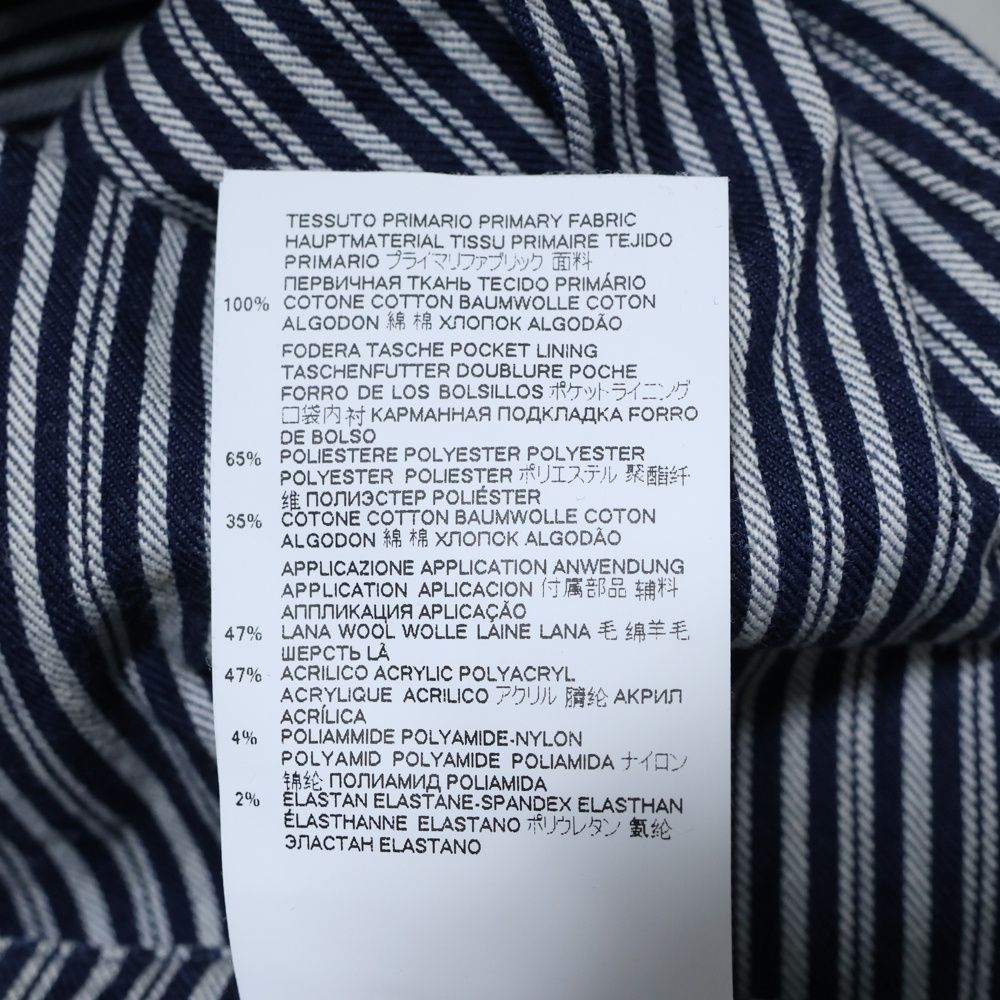 TESSUTO PRIMARIO PRIMARY FABRIC
HAUPTMATERIAL TISSU PRIMAIRE TEJIDO
PRIMARIO プライマリファブリック 面料
ПЕРВИЧНАЯ ТКАНЬ TECIDO PRIMÁRIO
100% COTONE COTTON BAUMWOLLE COTON
ALGODON 綿 棉 ХЛОПОК ALGODÃO
FODERA TASCHE POCKET LINING
TASCHENFUTTER DOUBLURE POCHE
FORRO DE LOS BOLSILLOS ポケットライニング
口袋内衬 КАРМАННАЯ ПОДКЛАДКА FORRO
DE BOLSO
65% POLIESTERE POLYESTER POLYESTER
POLYESTER POLIESTER ポリエステル 聚酯纤
维 ПОЛИЭСТЕР POLIÉSTER
35% COTONE COTTON BAUMWOLLE COTON
ALGODON 綿 棉 ХЛОПОК ALGODÃO
APPLICAZIONE APPLICATION ANWENDUNG
APPLICATION APLICACION 付属部品 辅料
АППЛИКАЦИЯ APLICAÇÃO
47% LANA WOOL WOLLE LAINE LANA 毛 绵羊毛
ШЕРСТЬ LÃ
47% ACRILICO ACRYLIC POLYACRYL
ACRYLIQUE ACRILICO アクリル 腈纶 АКРИЛ
ACRÍLICA
4% POLIAMMIDE POLYAMIDE-NYLON
POLYAMID POLYAMIDE POLIAMIDA ナイロン
锦纶 ПОЛИАМИД POLIAMIDA
2% ELASTAN ELASTANE-SPANDEX ELASTHAN
ÉLASTHANNE ELASTANO ポリウレタン 氨纶
ЭЛАСТАН ELASTANO